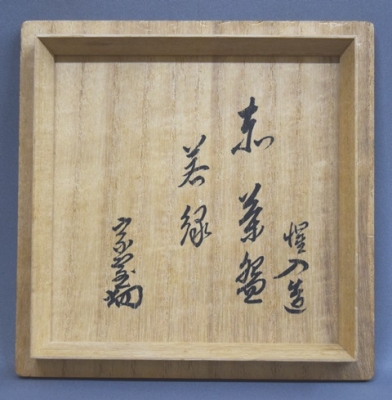 惺入造
赤茶盌
若緑
宗